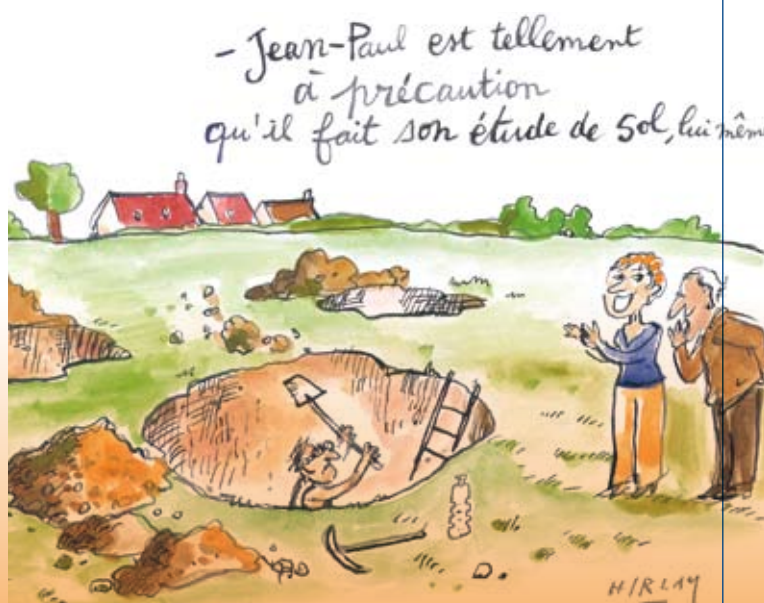 - Jean-Paul est tellement
à précaution
qu'il fait son étude de sol, lui même
HIRLAY